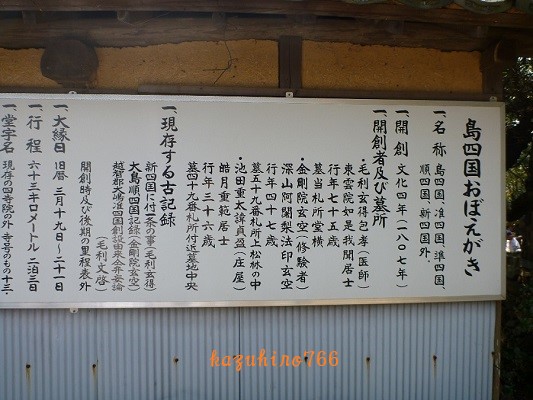 島四国おぼえがき
一、名称 島四国、准四国、準四国、
順四国、新四国外、
一、開創 文化四年(一八〇七年)
一、開創者及び墓所
・毛利玄得包孝(医師)
東雲院如是我聞居士
行年七十五歳
墓当札所堂横
・金剛院玄空(修験者)
深山阿闍梨法印玄空
行年四十七歳
墓五十九番札所上松林の中
・池田重太諱貞盈(庄屋)
皓月重範居士
行年三十六歳
墓四十九番札所付近墓地中央
一、現存する古記録
新四国に付一条の事(毛利玄得)
大島順四国記録(金剛院玄空)
越智郡大嶋准四国創設由来全弁無論
(毛利文啓)
開創時及び後期の里程表外
一、大縁日 旧暦 三月十九日〜二十一日
一、行程 六十三キロメートル 二泊三日
一、堂宇名 現存の四寺院の外 寺号のもの十三・
kazuhino766